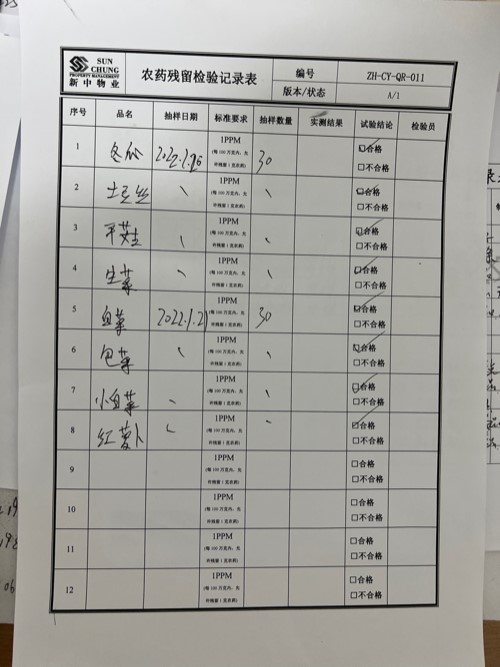 SUN
CHUNG
PROPERTY MANAGEMENT
新中物业
农药残留检验记录表
编号 ZH-CY-QR-011
版本/状态 A/1
序号 品名 抽样日期 标准要求 抽样数量 实测结果 试验结论 检验员
1 冬瓜 2022.1.26 1PPM (每100万克内，允许残留1克农药) 30 ☑合格 □不合格
2 土豆丝 、 1PPM (每100万克内，允许残留1克农药) 、 ☑合格 □不合格
3 、 1PPM (每100万克内，允许残留1克农药) 、 ☑合格 □不合格
4 生菜 、 1PPM (每100万克内，允许残留1克农药) 、 ☑合格 □不合格
5 白菜 2022.1.21 1PPM (每100万克内，允许残留1克农药) 30 ☑合格 □不合格
6 包菜 、 1PPM (每100万克内，允许残留1克农药) 、 ☑合格 □不合格
7 小白菜 、 1PPM (每100万克内，允许残留1克农药) 、 ☑合格 □不合格
8 红萝卜 、 1PPM (每100万克内，允许残留1克农药) 、 ☑合格 □不合格
9 1PPM (每100万克内，允许残留1克农药) □合格 □不合格
10 1PPM (每100万克内，允许残留1克农药) □合格 □不合格
11 1PPM (每100万克内，允许残留1克农药) □合格 □不合格
12 1PPM (每100万克内，允许残留1克农药) □合格 □不合格